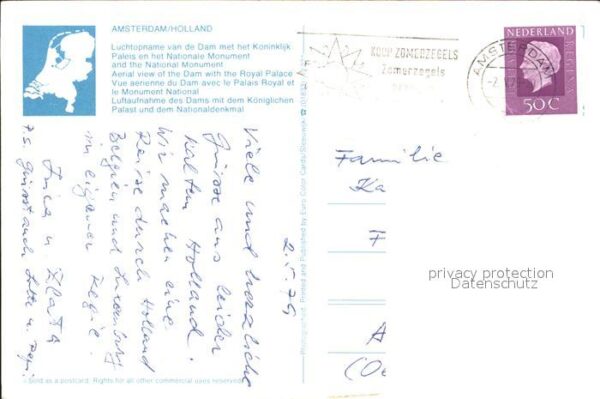 AMSTERDAM/HOLLAND
Luchtopname van de Dam met het Koninklijk
Paleis en het Nationale Monument
and the National Monument
Aerial view of the Dam with the Royal Palace
Vue aerienne du Dam avec le Palais Royal et
le Monument National
Luftaufnahme des Dams mit dem Königlichen
Palast und dem Nationaldenkmal
2.5.79
Viele und herzliche
Grüsse aus leider
kaltem Holland.
Wir machen eine
Reise durch Holland
Belgien und Luxemburg
in eigener Regie.
u.
P.S. Grüsst auch u.
Sold as a postcard. Rights for all other commercial uses reserved
Printed and Published by Euro Color Cards/Leeuwarden
KOOP ZOMERZEGELS
Zomerzegels
AMSTERDAM
NEDERLAND
50 C
Familie
Ka
F
A
(Oe
privacy protection
Datenschutz